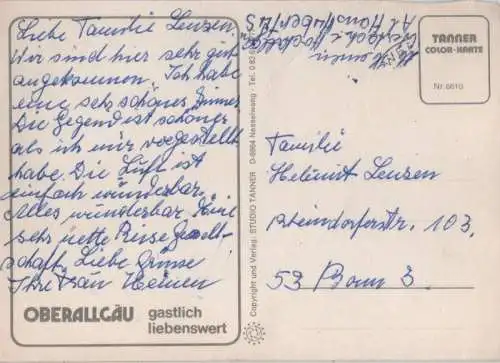 Liebe Familie Lenzen.
Wir sind hier sehr gut
angekommen. Ich habe
eine sehr schönes Zimmer
Die Gegend ist schöner
als ich mir vorgestellt
habe. Die Luft ist
einfach wunderbar.
Alles wunderbar. Eine
sehr nette Reise Gesell-
schaft. Liebe Grüsse
Ihre Frau Heinen
OBERALLGÄU gastlich
liebenswert
Copyright und Verlag: STUDIO TANNER D-8964 Nesselwang · Tel. 0 83
TANNER
COLOR-KARTE
Nr. 6610
Familie
Helmut Lenzen
Rheindorferstr. 103.
53 Bonn 3.